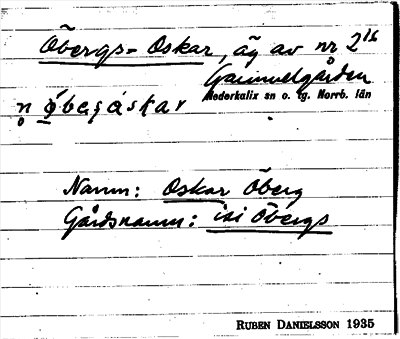 Öbergs-Oskar, äg av nr 2¹⁶
Gammelgården
Nederkalix sn o. tg. Norrb. län
Namn: Oskar Öberg
Gårdsnamn: isi Öbergs
RUBEN DANIELSSON 1935